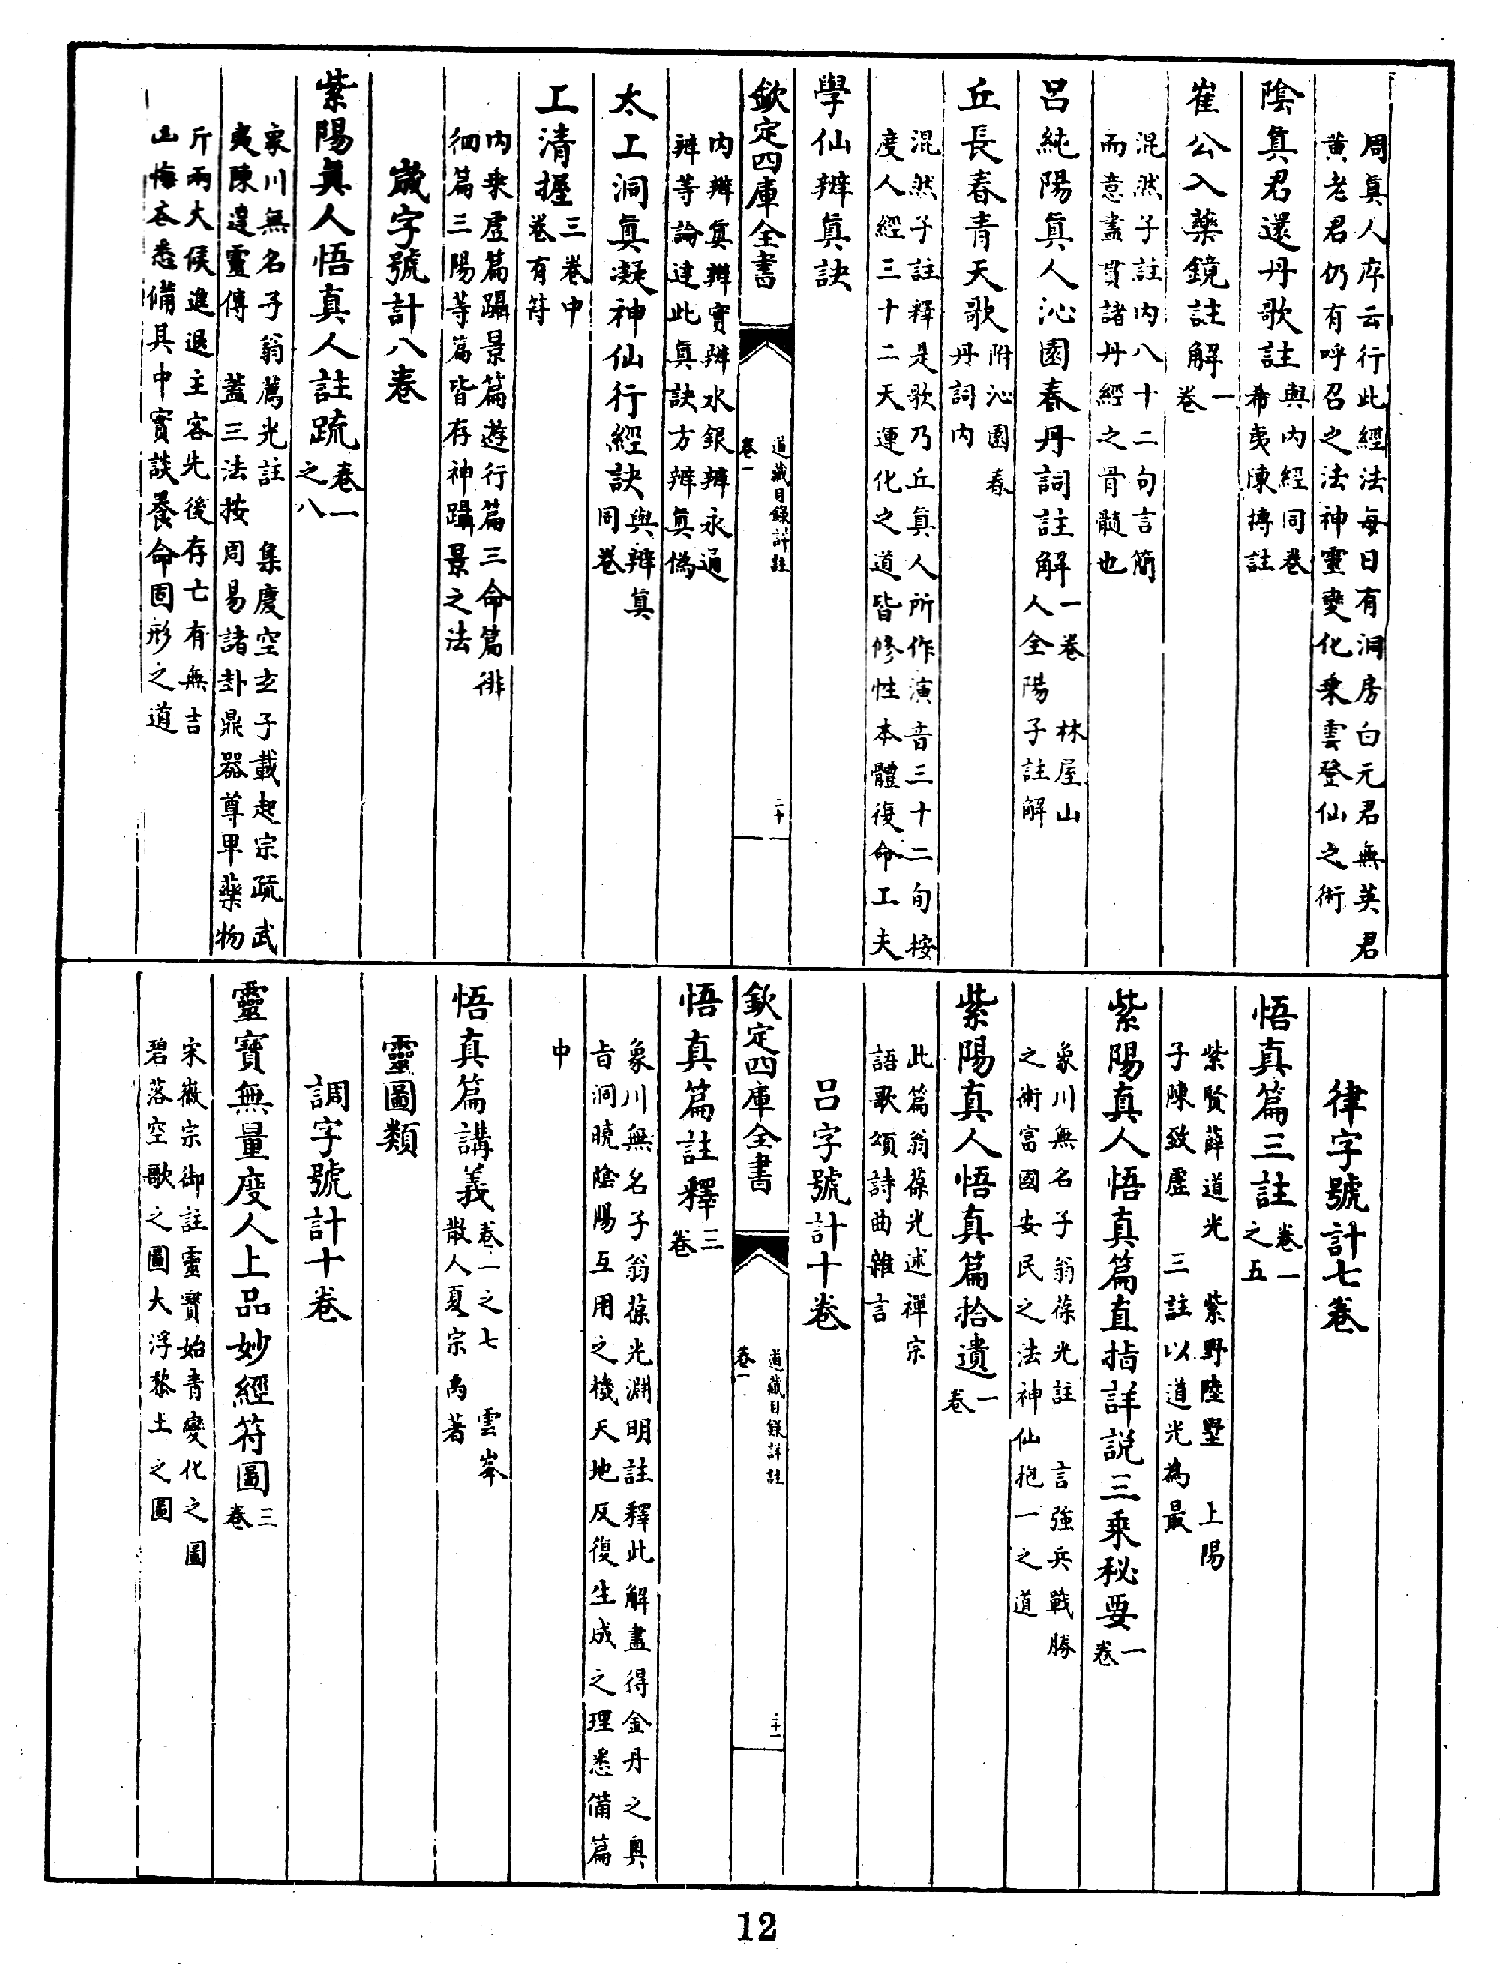 周眞人序云行此經法每日有洞房白元君無英君
黃老君仍有呼召之法神靈變化乘雲登仙之術
陰眞君還丹歌註
與內經同卷
希夷陳摶註
崔公入藥鏡註解
一
卷
混然子註內八十二句言簡
而意盡貫諸丹經之骨髓也
呂純陽眞人沁園春丹詞註解
一卷 林屋山
人全陽子註解
丘長春青天歌
附沁園春
丹詞內
混然子註釋是歌乃丘眞人所作演音三十二句按
度人經三十二天運化之道皆修性本體復命工夫
學仙辨眞訣
欽定四庫全書
道藏目錄詳註
卷一
二十
內辨眞辨實辨水銀辨永通
辨等論達此眞訣方辨眞僞
太上洞眞凝神仙行經訣
與辨眞
同卷
上清握
三卷中
卷有符
內乘虛篇躡景篇遊行篇三命篇徘
徊篇三陽等篇皆存神躡景之法
歲字號計八卷
紫陽眞人悟真人註疏
卷一
之八
象川無名子翁葆光註 集慶空玄子戴起宗疏武
夷陳達靈傳 蓋三法按周易諸卦鼎器尊卑藥物
斤兩火候進退主客先後存亡有無吉
凶悔吝悉備其中實談養命固形之道
律字號計七卷
悟真篇三註
卷一
之五
紫賢薛道光 紫野陸墅 上陽
子陳致虛 三註以道光爲最
紫陽真人悟真篇直指詳說三乘秘要
一
卷
象川無名子翁葆光註 言強兵戰勝
之術富國安民之法神仙抱一之道
紫陽真人悟真篇拾遺
一
卷
此篇翁葆光述禪宗
語歌頌詩曲雜言
呂字號計十卷
欽定四庫全書
道藏目錄詳註
卷一
二十一
悟真篇註釋
三
卷
象川無名子翁葆光淵明註釋此解盡得金丹之奧
旨洞曉陰陽互用之機天地反復生成之理悉備篇
中
悟真篇講義
卷一之七 雲峯
散人夏宗禹著
靈圖類
調字號計十卷
靈寶無量度人上品妙經符圖
三
卷
宋徽宗御註靈寶始青變化之圖
碧落空歌之圖大浮黎土之圖
12